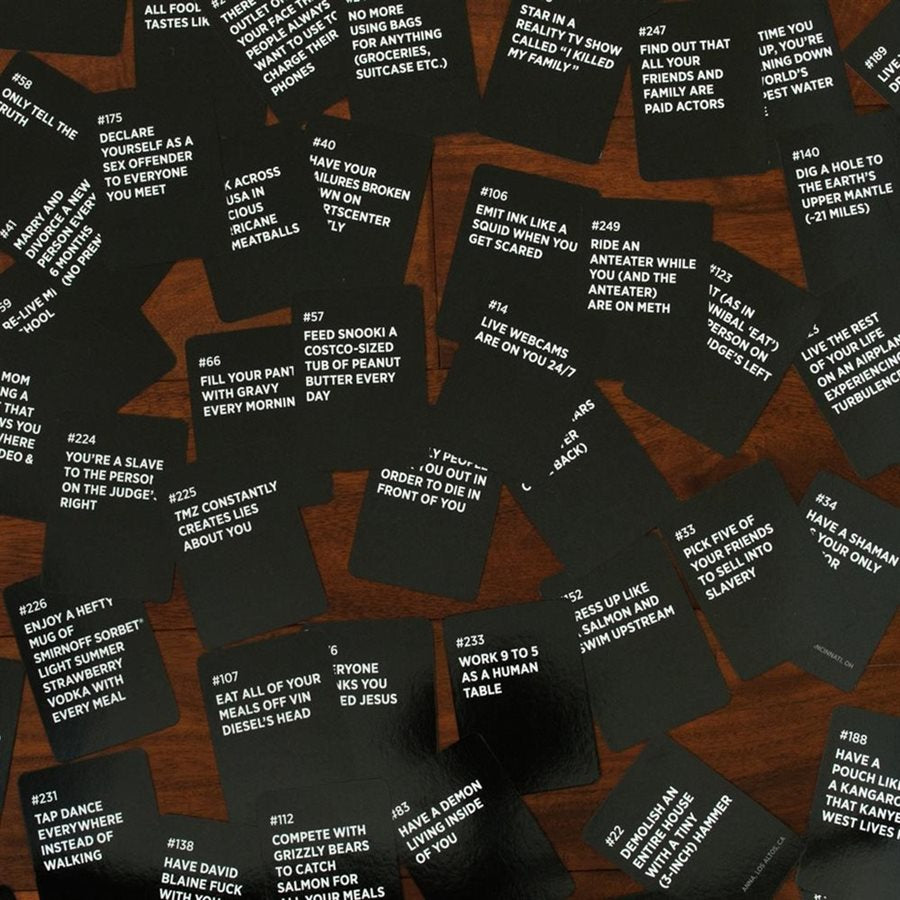 ALL FOOL
TASTES LIK
THERE
OUTLET O
YOUR FACE TH
PEOPLE ALWAYS
WANT TO USE TO
CHARGE THEIR
PHONES
NO MORE
USING BAGS
FOR ANYTHING
(GROCERIES,
SUITCASE ETC.)
STAR IN A
REALITY TV SHOW
CALLED "I KILLED
MY FAMILY"
#247
FIND OUT THAT
ALL YOUR
FRIENDS AND
FAMILY ARE
PAID ACTORS
TIME YOU
UP, YOU'RE
NING DOWN
ORLD'S
PEST WATER
#189
LIVE
#58
ONLY TELL THE
TRUTH
#175
DECLARE
YOURSELF AS A
SEX OFFENDER
TO EVERYONE
YOU MEET
#40
HAVE YOUR
AILURES BROKEN
WN ON
RTSCENTER
TLY
K ACROSS
USA IN
CIOUS
RICANE
MEATBALLS
#140
DIG A HOLE TO
THE EARTH'S
UPPER MANTLE
(~21 MILES)
#41
MARRY AND
DIVORCE A NEW
PERSON EVERY
6 MONTHS
(NO PREN
#106
EMIT INK LIKE A
SQUID WHEN YOU
GET SCARED
#249
RIDE AN
ANTEATER WHILE
YOU (AND THE
ANTEATER)
ARE ON METH
#123
AT (AS IN
NNIBAL 'EAT')
PERSON ON
DGE'S LEFT
59
RE-LIVE MI
HOOL
#14
LIVE WEBCAMS
ARE ON YOU 24/7
LIVE THE REST
OF YOUR LIFE
ON AN AIRPLAN
EXPERIENCING
TURBULENCE
#66
FILL YOUR PANT
WITH GRAVY
EVERY MORNIN
#57
FEED SNOOKI A
COSTCO-SIZED
TUB OF PEANUT
BUTTER EVERY
DAY
MOM
NG A
THAT
WS YOU
WHERE
DEO &
ARS
ER
BACK)
#224
YOU'RE A SLAVE
TO THE PERSON
ON THE JUDGE'S
RIGHT
#225
TMZ CONSTANTLY
CREATES LIES
ABOUT YOU
LY PEOPLE
YOU OUT IN
ORDER TO DIE IN
FRONT OF YOU
#33
PICK FIVE OF
YOUR FRIENDS
TO SELL INTO
SLAVERY
#34
HAVE A SHAMAN
S YOUR ONLY
OR
NCINNATI, OH
#226
ENJOY A HEFTY
MUG OF
SMIRNOFF SORBET®
LIGHT SUMMER
STRAWBERRY
VODKA WITH
EVERY MEAL
152
RESS UP LIKE
SALMON AND
SWIM UPSTREAM
#107
EAT ALL OF YOUR
MEALS OFF VIN
DIESEL'S HEAD
6
ERYONE
NKS YOU
ED JESUS
#233
WORK 9 TO 5
AS A HUMAN
TABLE
#188
HAVE A
POUCH LIKE
A KANGARO
THAT KANYE
WEST LIVES I
#231
TAP DANCE
EVERYWHERE
INSTEAD OF
WALKING
#138
HAVE DAVID
BLAINE FUCK
WITH YOU
#112
COMPETE WITH
GRIZZLY BEARS
TO CATCH
SALMON FOR
ALL YOUR MEALS
#83
HAVE A DEMON
LIVING INSIDE
OF YOU
#22
DEMOLISH AN
ENTIRE HOUSE
WITH A TINY
(3-INCH) HAMMER
ANNA, LOS ALTOS, CA